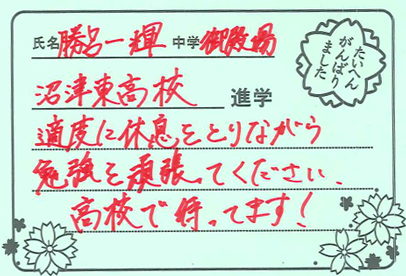 氏名 勝呂一輝 中学 御殿場
たいへん
がんばり
ました
沼津東高校 進学
適度に休息をとりながら
勉強を頑張ってください、
高校で待ってます!